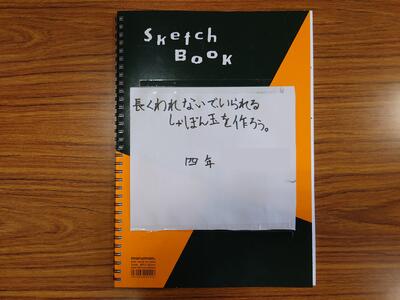 Sketch
Book
長くわれないでいられる
しゃぼん玉を作ろう。
四年
maruman